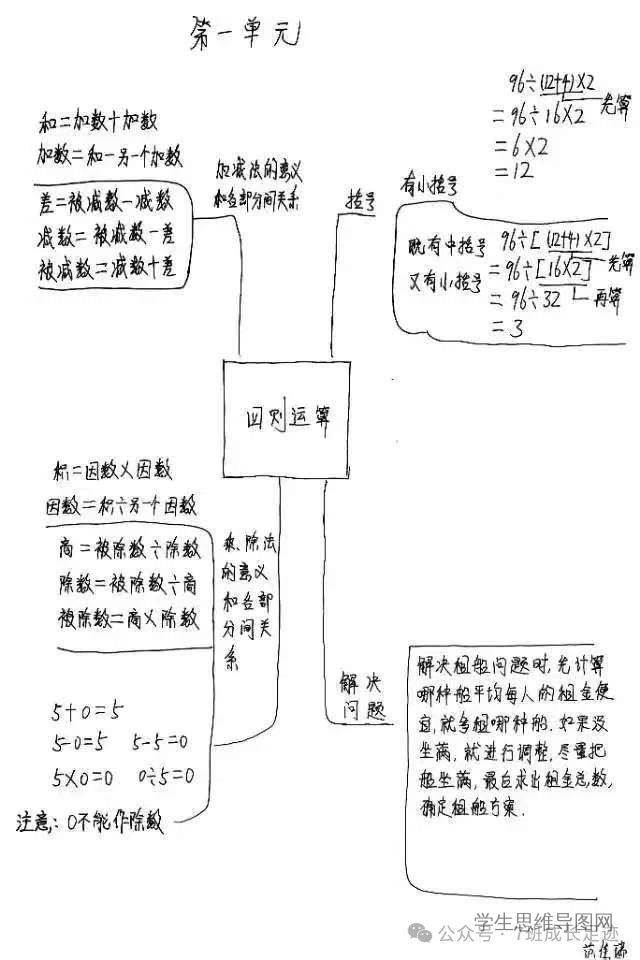 第一单元
和=加数+加数
加数=和-另一个加数
差=被减数-减数
减数=被减数-差
被减数=减数+差
加减法的意义
和各部分间关系
括号
有小括号
96÷(12+4)×2
先算
=96÷16×2
=6×2
=12
既有中括号
又有小括号
96÷[(12+4)×2]
先算
=96÷[16×2]
再算
=96÷32
=3
四则运算
积=因数×因数
因数=积÷另一个因数
商=被除数÷除数
除数=被除数÷商
被除数=商×除数
乘、除法
的意义
和各部
分间关
系
5+0=5
5-0=5 5-5=0
5×0=0 0÷5=0
注意:0不能作除数
解决
问题
解决租船问题时,先计算
哪种船平均每人的租金便
宜,就多租哪种船.如果没
坐满,就进行调整,尽量把
船坐满,最后求出租金总数,
确定租船方案.
学生思维导图网
公众号·7班成长足迹